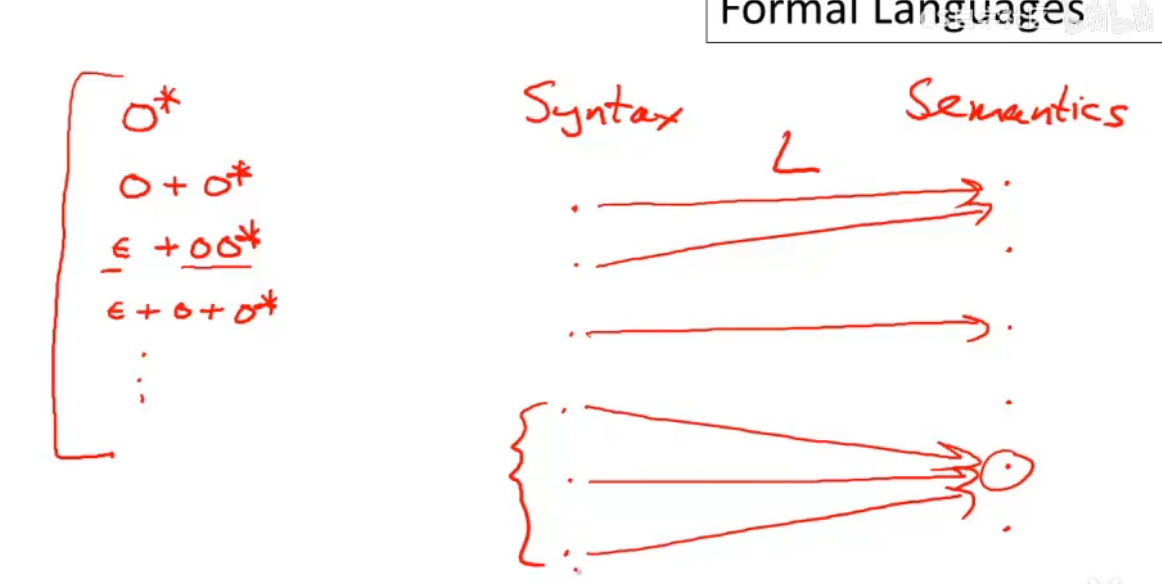 Formal Languages
0*
0 + 0*
ε + 00*
ε + 0 + 0*
Syntax
Semantics
L